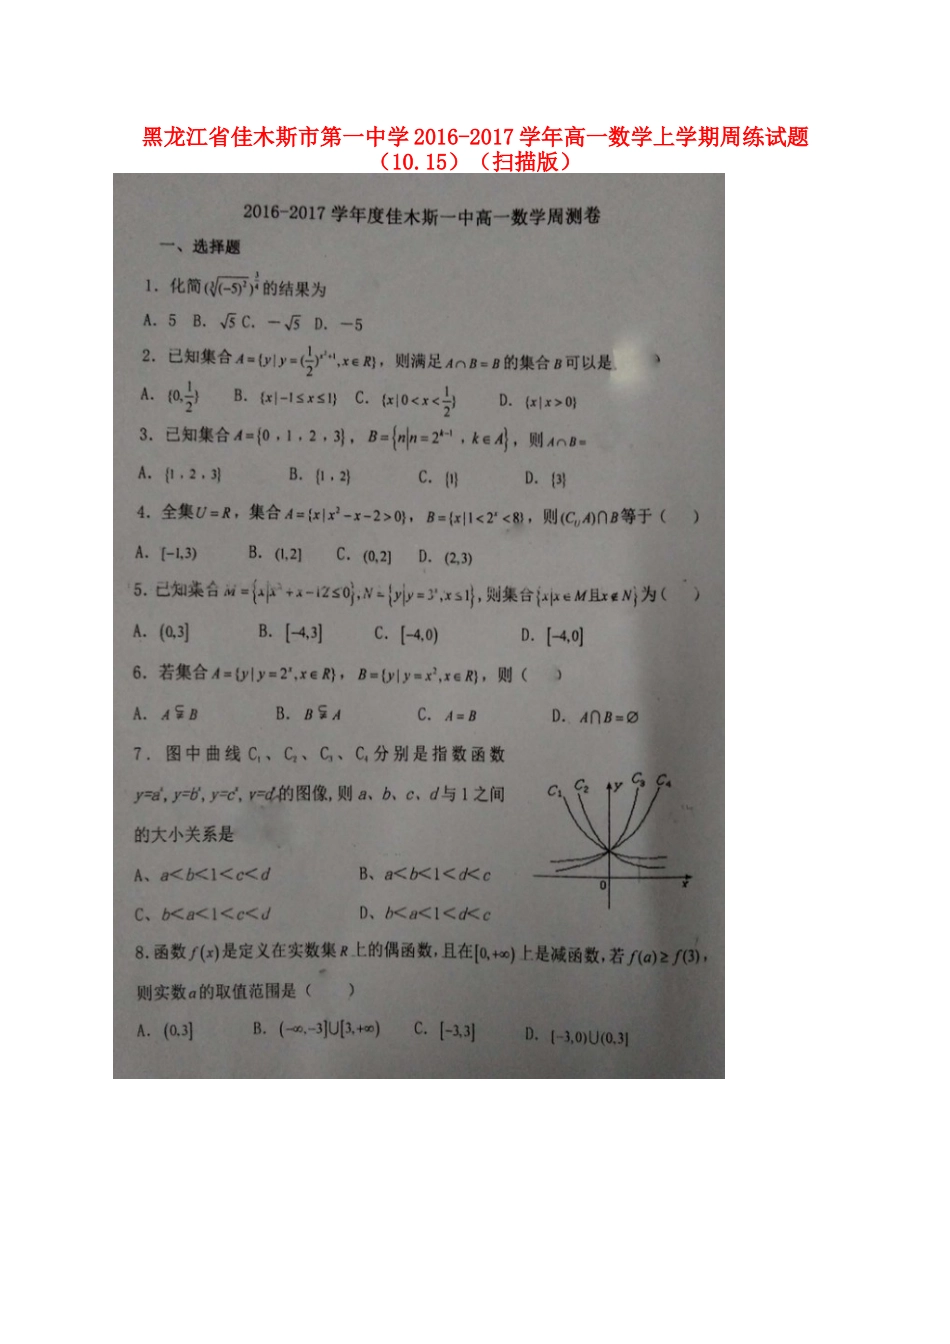 黑龙江省佳木斯市第一中学 2016-2017 学年高一数学上学期周练试题
（10.15）（扫描版）
2016-2017 学年度佳木斯一中高一数学周测卷
一、选择题
1. 化简(∛(−5)²)^(3/4)的结果为
A. 5 B. √5 C. −√5 D. −5
2. 已知集合A={y|y=(1/2)^(x²+1),x∈R}，则满足A∩B=B的集合B可以是
A. {0,1/2} B. {x|−1≤x≤1} C. {x|0<x<1/2} D. {x|x>0}
3. 已知集合A={0，1，2，3}，B={n|n=2^(k−1)，k∈A}，则A∩B=
A. {1，2，3} B. {1，2} C. {1} D. {3}
4. 全集U=R，集合A={x|x²−x−2>0}，B={x|1<2ˣ<8}，则(C_U A)∩B等于（ ）
A. [−1,3) B. (1,2] C. (0,2] D. (2,3)
5. 已知集合M={x|x²+x−12≤0},N={y|y=3ˣ,x≤1},则集合{x|x∈M且x∉N}为( )
A. (0,3] B. [−4,3] C. [−4,0) D. [−4,0]
6. 若集合A={y|y=2ˣ,x∈R}，B={y|y=x²,x∈R}，则（ ）
A. A⫋B B. B⫋A C. A=B D. A∩B=∅
7. 图中曲线 C₁、C₂、C₃、C₄ 分别是指数函数
y=aˣ,y=bˣ,y=cˣ,y=dˣ的图像,则 a、b、c、d 与 1 之间
的大小关系是
C₁ C₂ y C₃ C₄
0 x
A、a<b<1<c<d B、a<b<1<d<c
C、b<a<1<c<d D、b<a<1<d<c
8. 函数f(x)是定义在实数集R上的偶函数,且在[0,+∞)上是减函数,若f(a)≥f(3),
则实数a的取值范围是（ ）
A. (0,3] B. (−∞,−3]∪[3,+∞) C. [−3,3] D. [−3,0)∪(0,3]